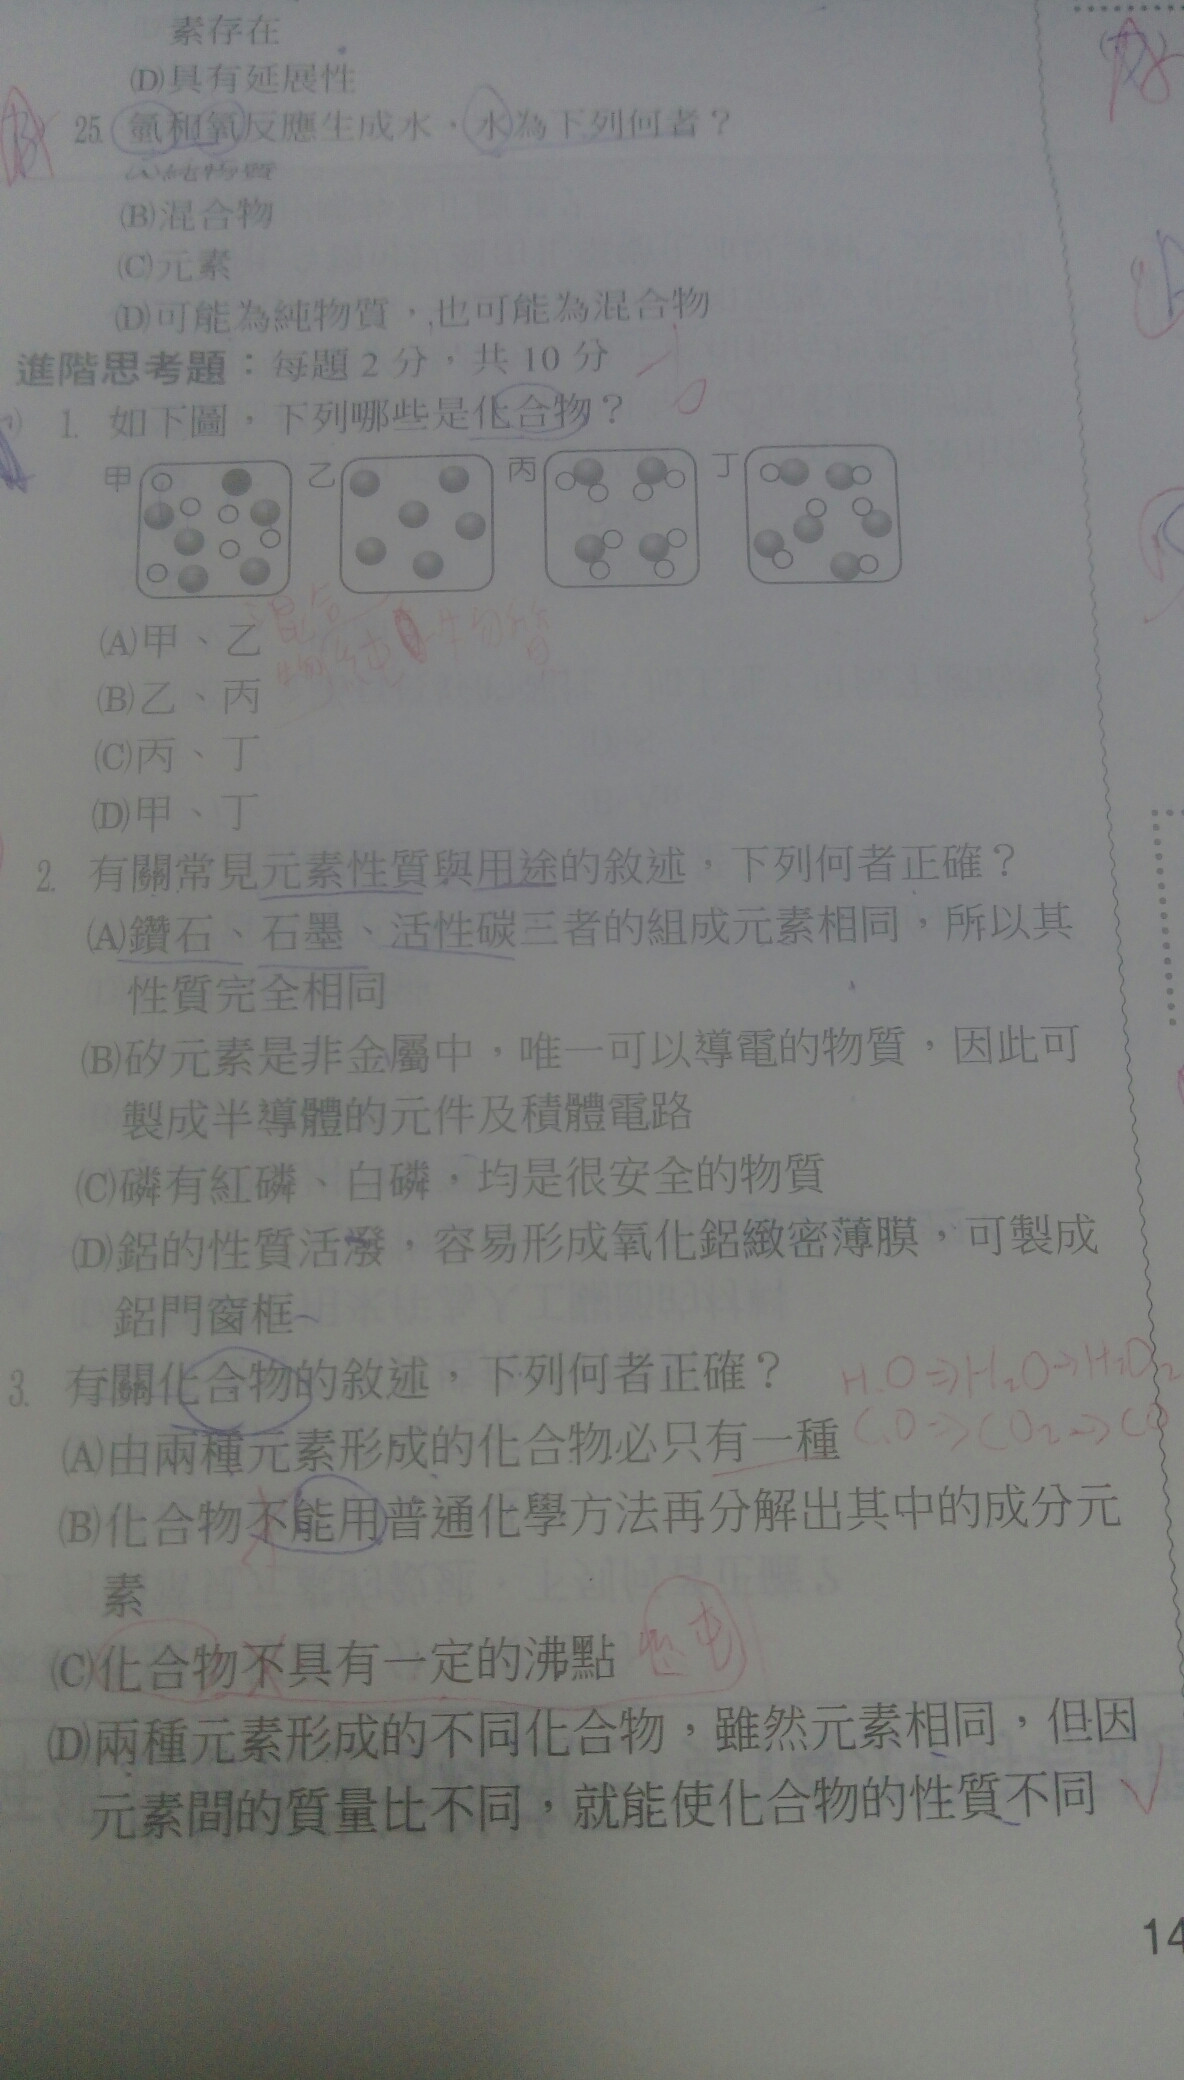 素存在
(D)具有延展性
25. 氫和氧反應生成水，水為下列何者？
(A)純物質
(B)混合物
(C)元素
(D)可能為純物質，也可能為混合物
進階思考題：每題2分，共10分
1. 如下圖，下列哪些是化合物？
甲 乙 丙 丁
(A)甲、乙
(B)乙、丙
(C)丙、丁
(D)甲、丁
2. 有關常見元素性質與用途的敘述，下列何者正確？
(A)鑽石、石墨、活性碳三者的組成元素相同，所以其
性質完全相同
(B)矽元素是非金屬中，唯一可以導電的物質，因此可
製成半導體的元件及積體電路
(C)磷有紅磷、白磷，均是很安全的物質
(D)鋁的性質活潑，容易形成氧化鋁緻密薄膜，可製成
鋁門窗框
3. 有關化合物的敘述，下列何者正確？
H.O⇒H₂O→H₂O₂
(A)由兩種元素形成的化合物必只有一種
C.O⇒CO₂→CO
(B)化合物不能用普通化學方法再分解出其中的成分元
素
(C)化合物不具有一定的沸點
(D)兩種元素形成的不同化合物，雖然元素相同，但因
元素間的質量比不同，就能使化合物的性質不同
14